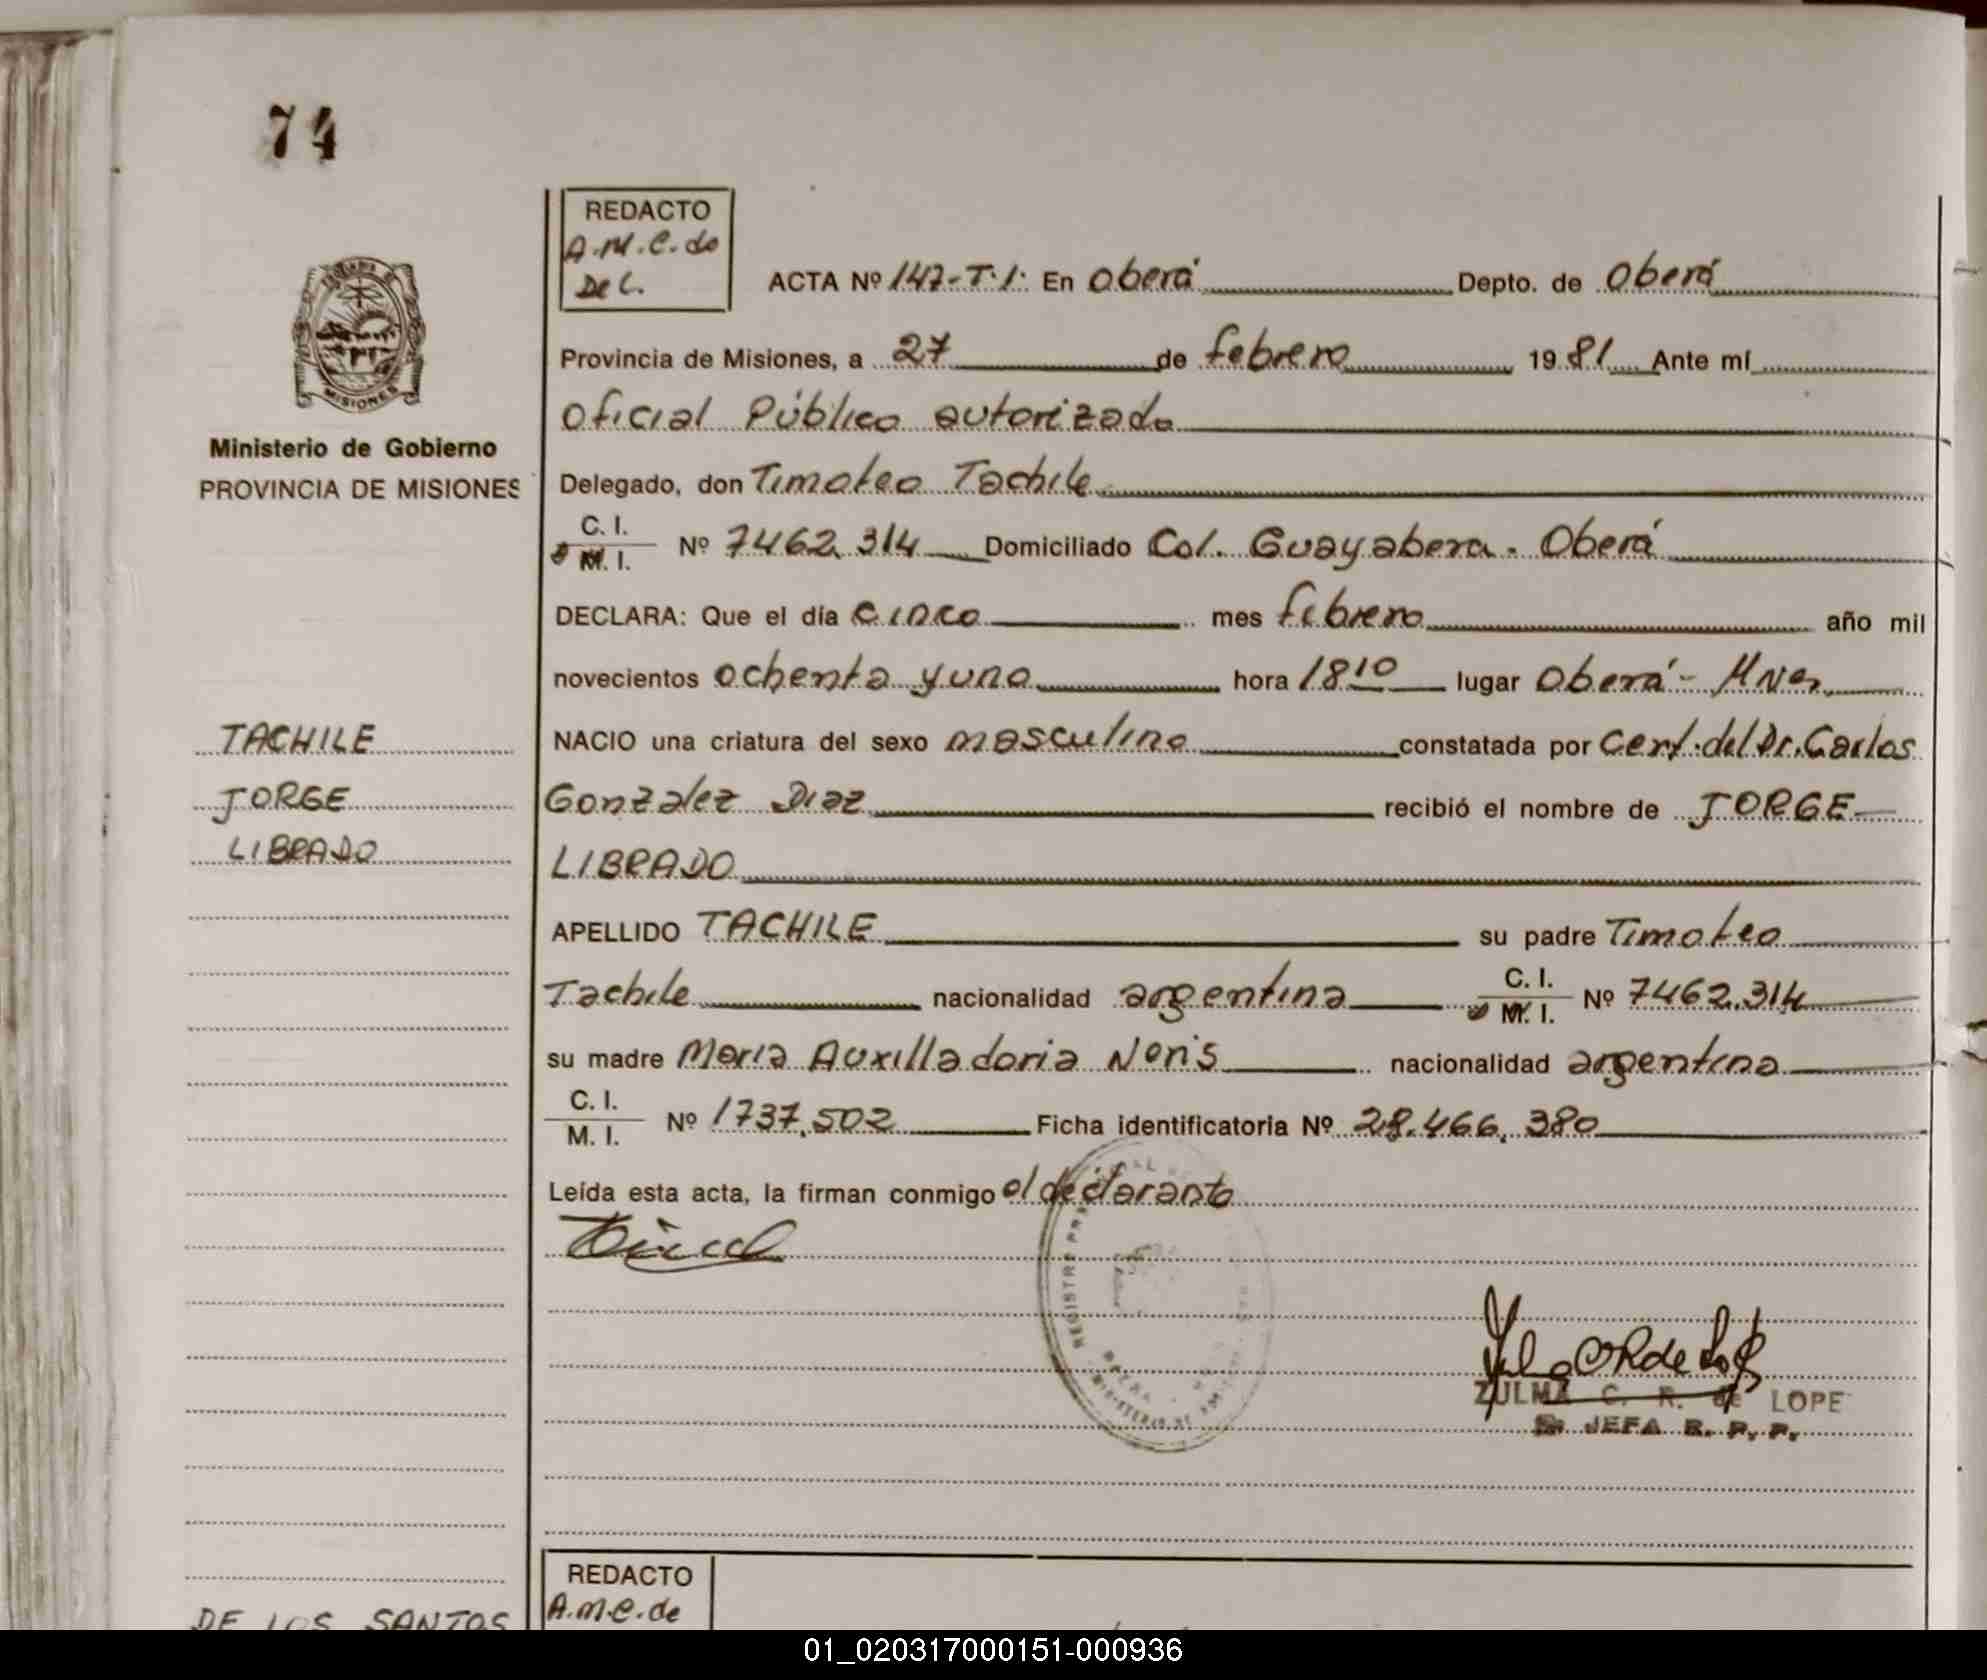 74
REDACTO
A.M.C. de
De L.
ACTA Nº 147-T.1. En Oberá Depto. de Oberá
Provincia de Misiones, a 27 de febrero 1981 Ante mí
Oficial Público autorizado
Ministerio de Gobierno
PROVINCIA DE MISIONES
Delegado, don Timoteo Tachile
C. I.
M. I. Nº 7462.314 Domiciliado Col. Guayabera. Oberá
DECLARA: Que el día cinco mes febrero año mil
novecientos ochenta y uno hora 18 10 lugar Oberá - Mnes
NACIO una criatura del sexo masculino constatada por Cert. del Dr. Carlos
González Diaz recibió el nombre de JORGE
LIBRADO
TACHILE
JORGE
LIBRADO
APELLIDO TACHILE su padre Timoteo
Tachile nacionalidad argentina C. I.
M. I. Nº 7462.314
su madre Maria Auxiliadoria Neris nacionalidad argentina
C. I.
M. I. Nº 1737.502 Ficha identificatoria Nº 28.466.380
Leída esta acta, la firman conmigo el declarante
ZULMA C. R. de LOPE
JEFA R. P. P.
REDACTO
A.M.C. de
DE LOS SANTOS
01_020317000151-000936